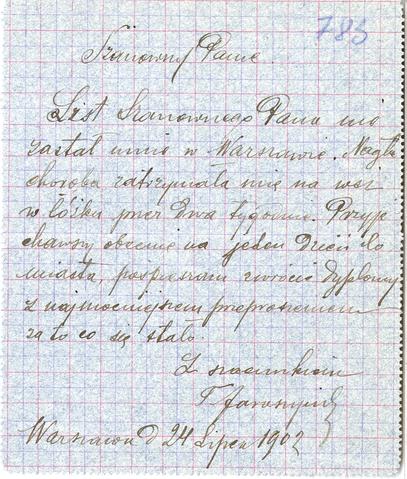 785
Szanowny Panie
List Szanownego Pana nie
zastał mnie w Warszawie. Nagła
choroba zatrzymała mię na wsi
w łóżku przez dwa tygodnie. Przyje
chawszy obecnie na jeden dzień do
miasta, pospieszam zwrócić dyplomy
z najmocniejszem przeproszeniem
za to co się stało.
Z szacunkiem
Warszawa d 24 Lipca 1902